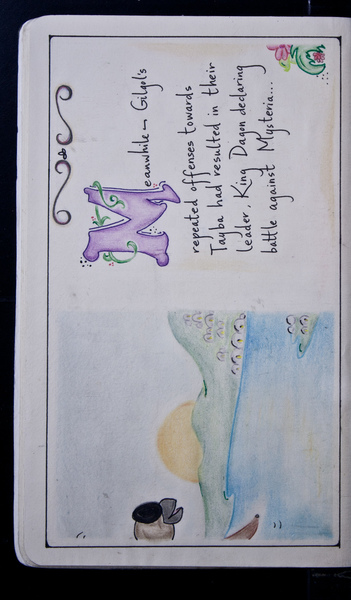 Meanwhile – Gilgol's
repeated offenses towards
Tayba had resulted in their
leader, King Dagon declaring
battle against Mysteria...